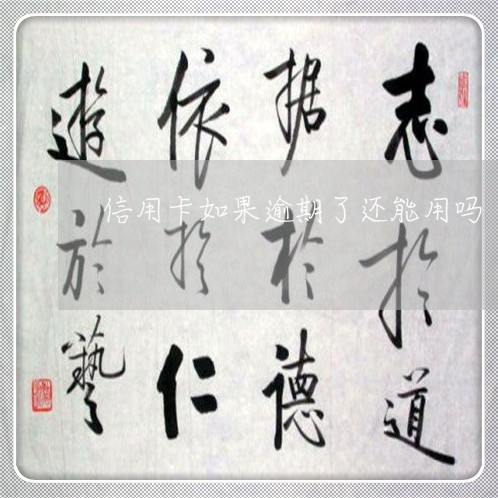 志於道
据於德
依於仁
遊於藝
信用卡如果逾期了还能用吗